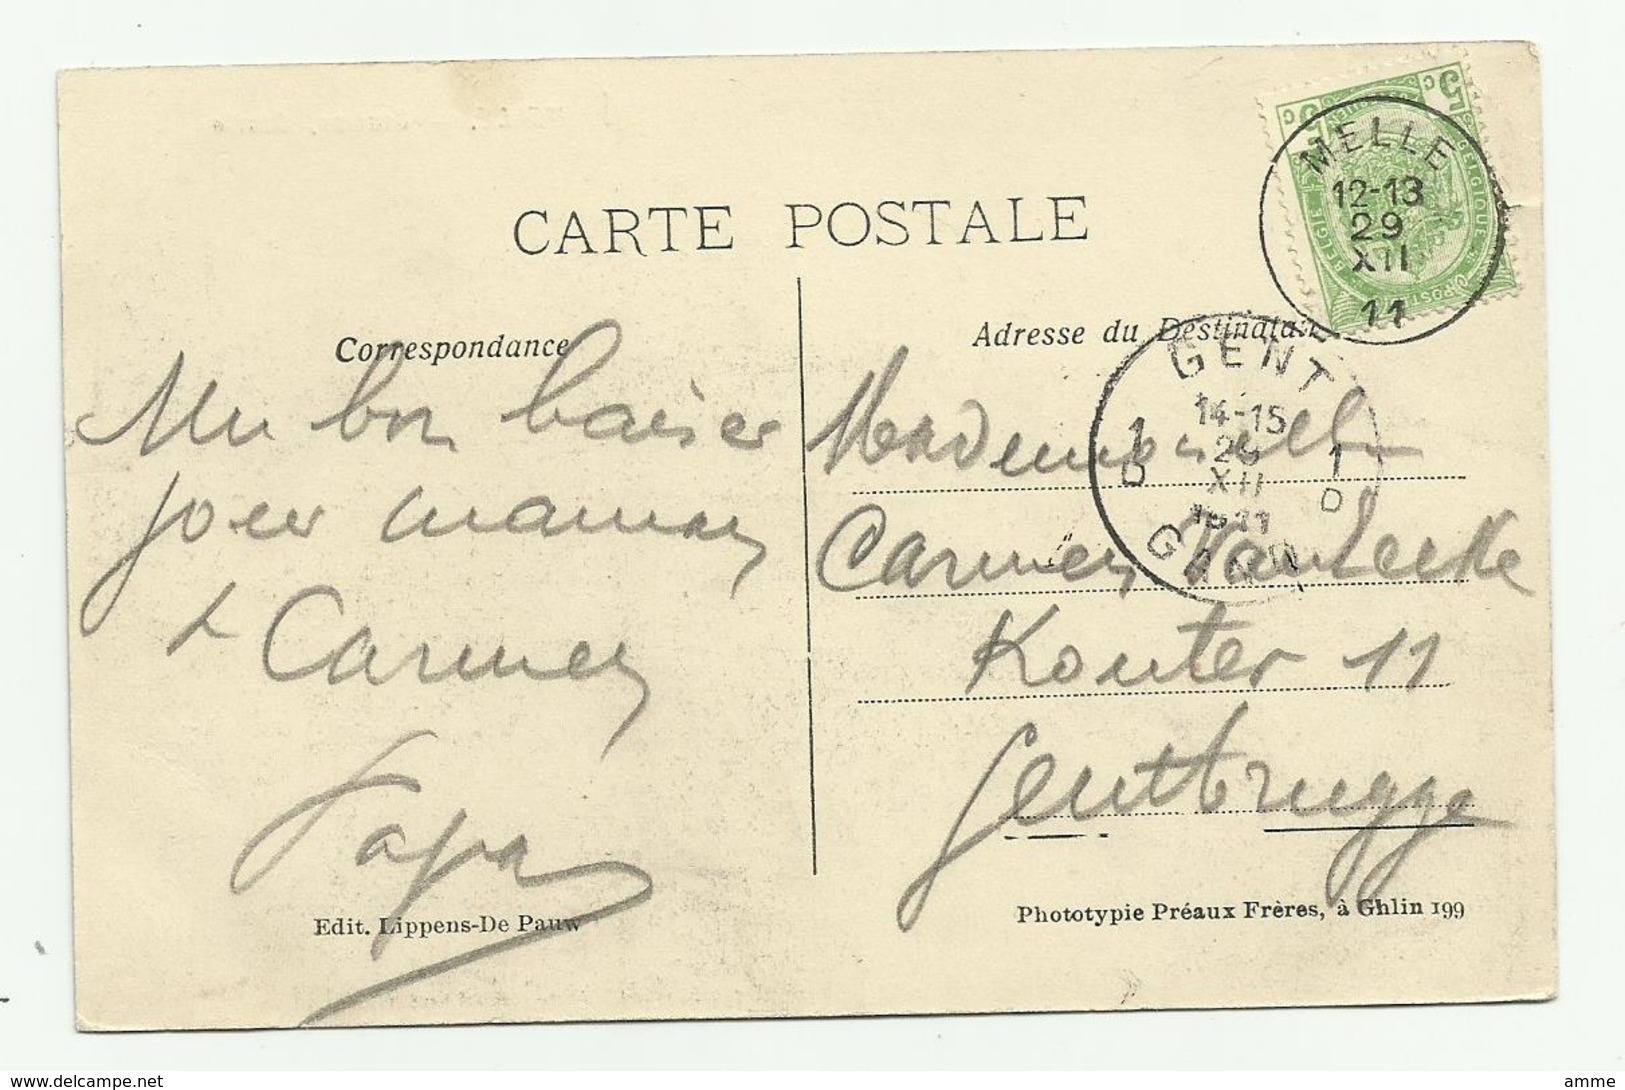 CARTE POSTALE
Correspondance
Un bon baiser
pour maman
& Carmen
Papa
Edit. Lippens-De Pauw
BELGIQUE
BELGIE
5 c
5 c
MELLE
12-13
29
XII
11
Adresse du Destinataire
GENT
14-15
29
XII
1911
1 D
1 D
GAND
Mademoiselle
Carmen
Kouter 11
Gentbrugge
Phototypie Préaux Frères, à Ghlin 199
delcampe.net
amme